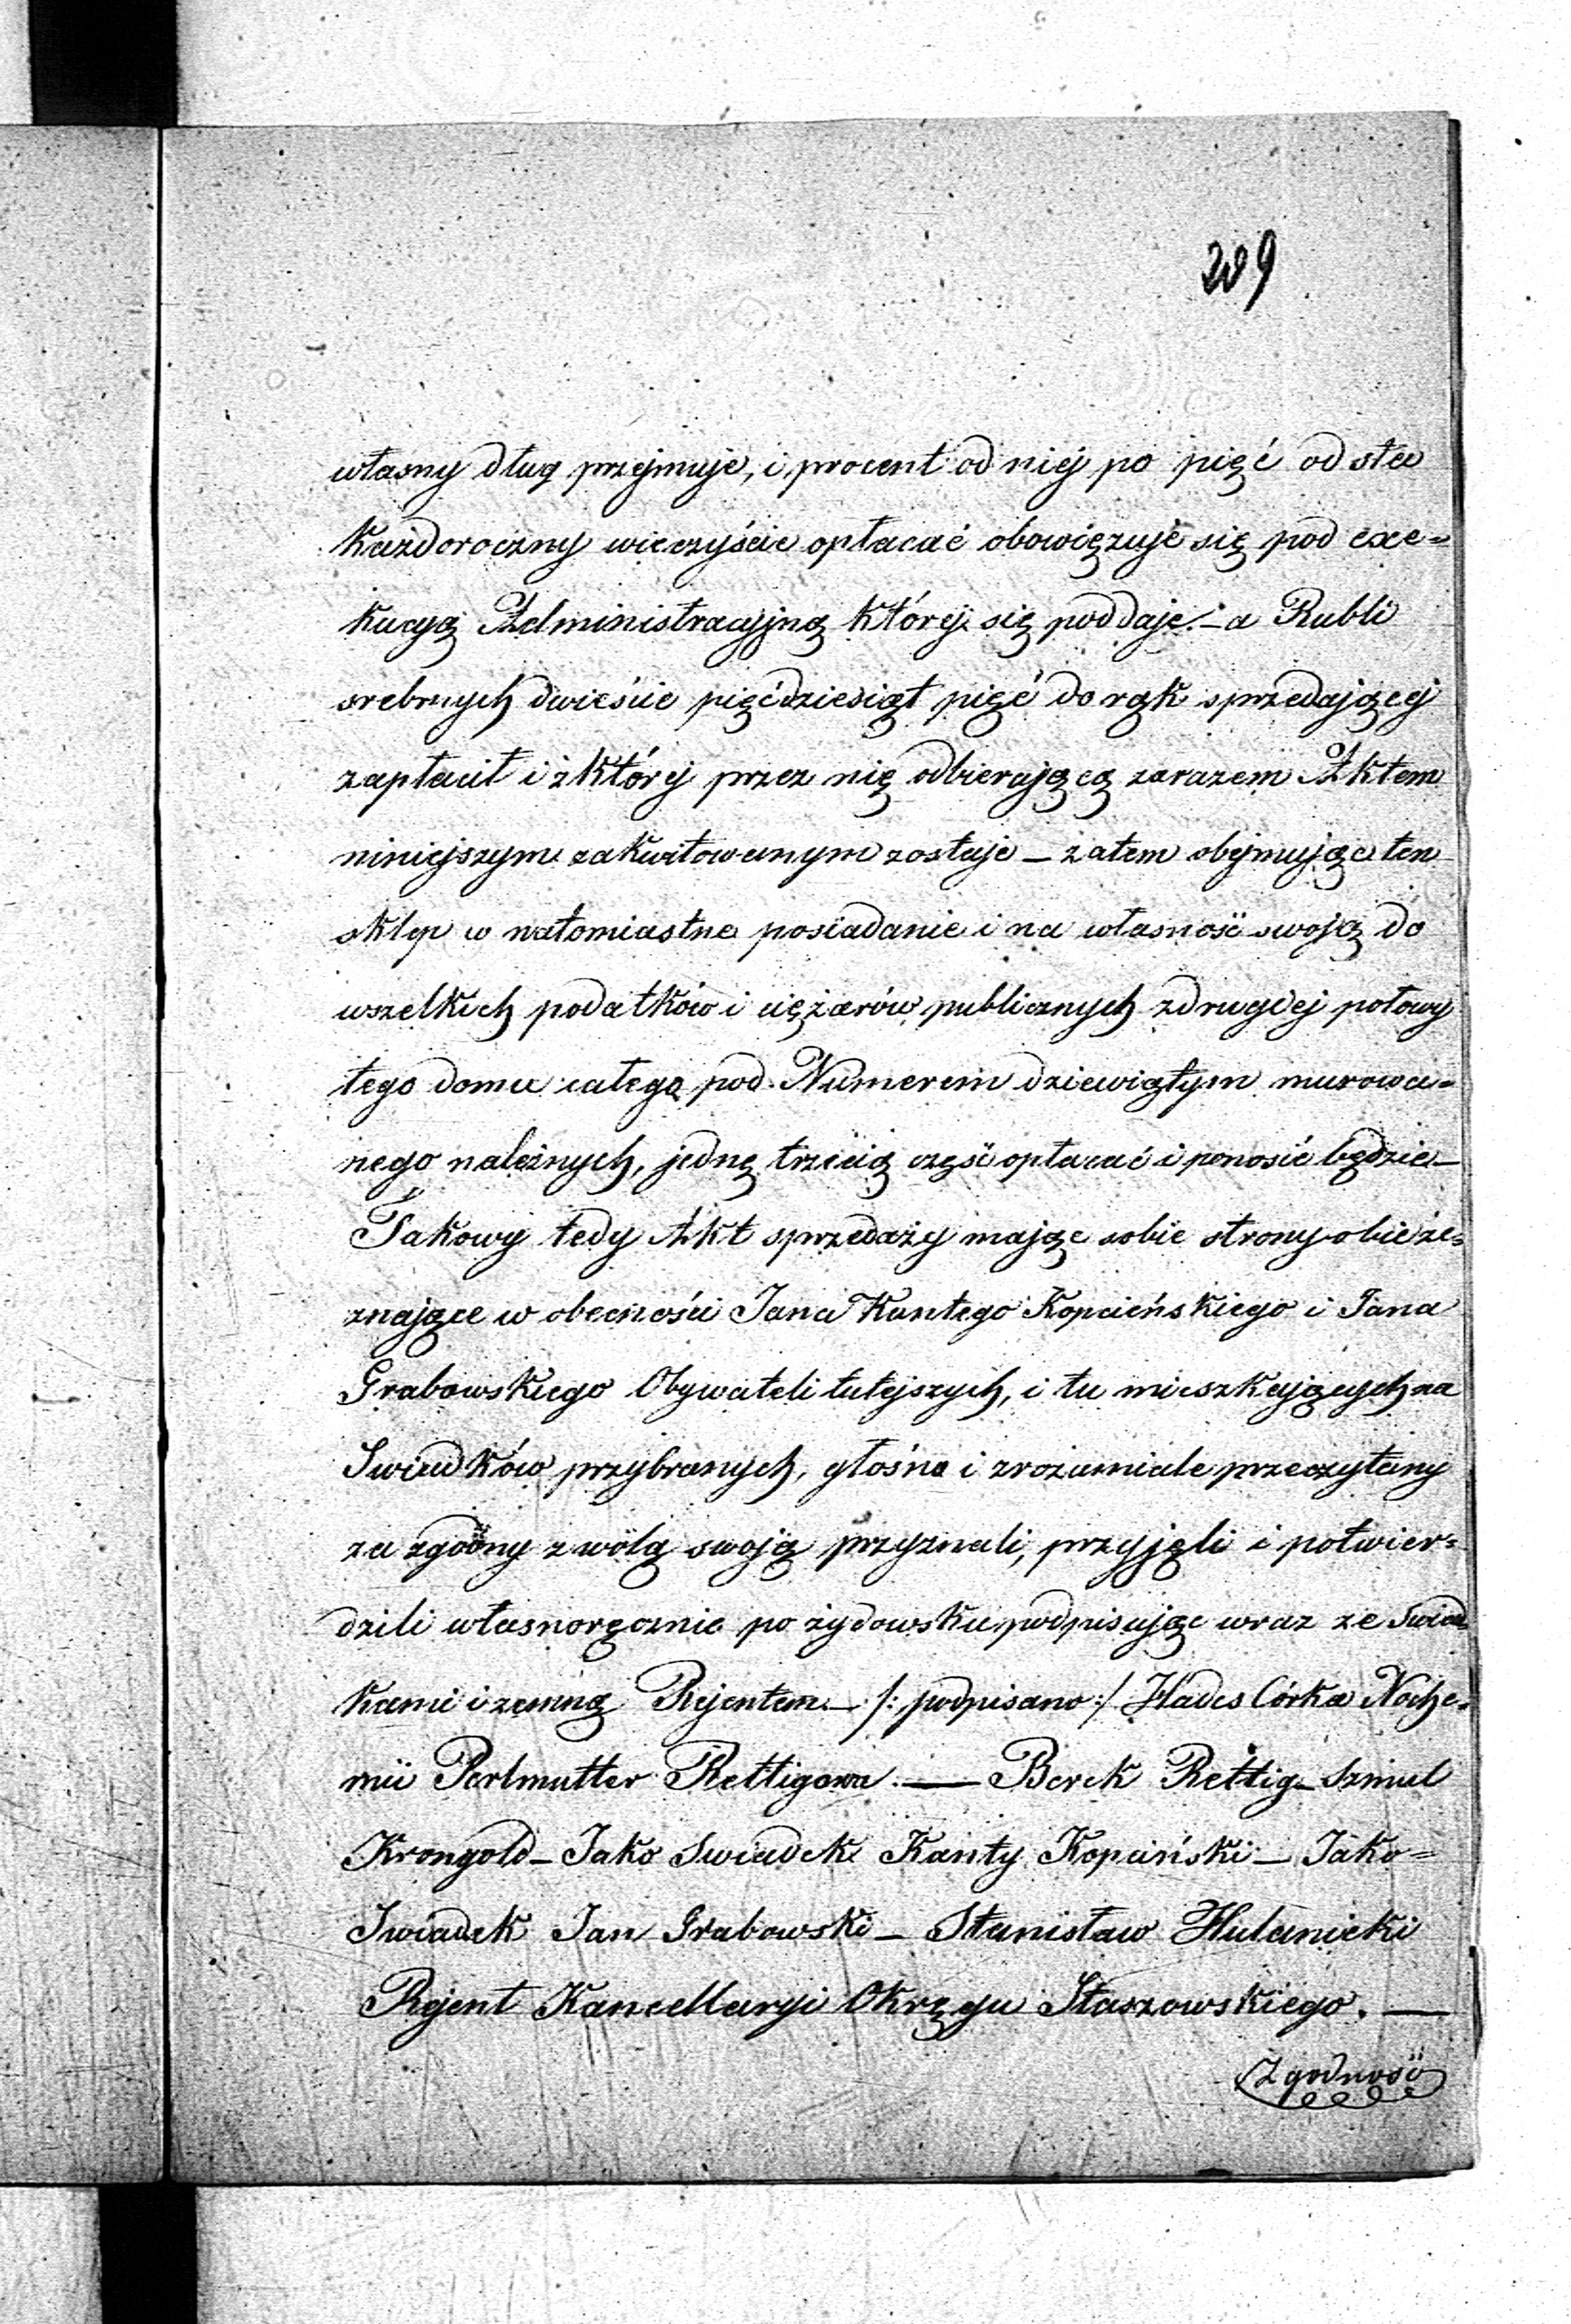 209
własny dług przejmuje, i procent od niej po pięć od sta
każdoroczny wieczyście opłacać obowięzuje się pod exe=
kucyą Administracyjną której się poddaje. – a Rubli
srebrnych dwieście pięćdziesiąt pięć do rąk sprzedającej
zapłacił i z której przez nię odbierającą zarazem Aktem
niniejszym zakwitowanym zostaje – zatem obejmując ten
sklep w natomiastne posiadanie i na własność swoją do
wszelkich podatków i ciężarów publicznych z drugiej połowy
tego domu całego pod Numerem dziewiątym murowa=
nego należnych, jednę trzecią część opłacać i ponosić będzie –
Takowy tedy Akt sprzedaży mając sobie strony obie ze=
znające w obecności Jana Kantego Kopcińskiego i Jana
Grabowskiego Obywateli tutejszych, i tu mieszkających za
Swiadków przybranych, głośno i zrozumiale przeczytany
za zgodny z wolą swoją przyznali, przyjęli i potwier=
dzili własnoręcznie po żydowsku podpisując wraz ze Swiad=
kami i zemną Rejentem. – /: podpisano :/ Hades Córka Noche=
mii Perlmutter Rettigowa. — Berek Rettig – Szmul
Krongold – Jako Swiadek Kanty Kopciński – Jako =
Swiadek Jan Grabowski – Stanisław Hulanicki
Rejent Kancellaryi Okręgu Staszowskiego. —
Zgodność